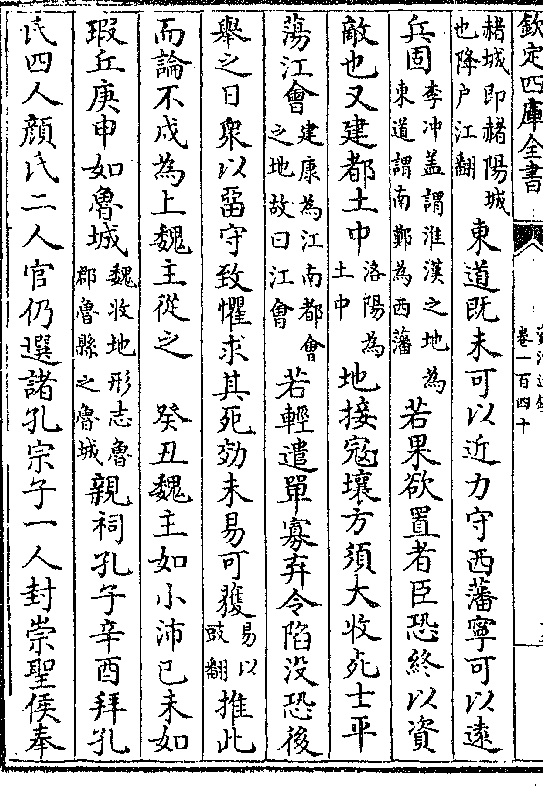 欽定四庫全書
卷一百四十
赭城即赭陽城
也降户江翻
東道既未可以近力守西藩寧可以遠
兵固
李冲盖謂淮漢之地為
東道謂南鄭為西藩
若果欲置者臣恐終以資
敵也又建都土中
洛陽為
土中
地接寇壤方須大收死士平
蕩江會
建康為江南都會
之地故曰江會
若輕遣單寡弃令陷没恐後
舉之日衆以畱守致懼求其死効未易可獲
易以
豉翻
推此
而論不戍為上魏主從之　癸丑魏主如小沛己未如
瑕丘庚申如魯城
魏收地形志魯
郡魯縣之魯城
親祠孔子辛酉拜孔
氏四人顔氏二人官仍選諸孔宗子一人封崇聖侯奉